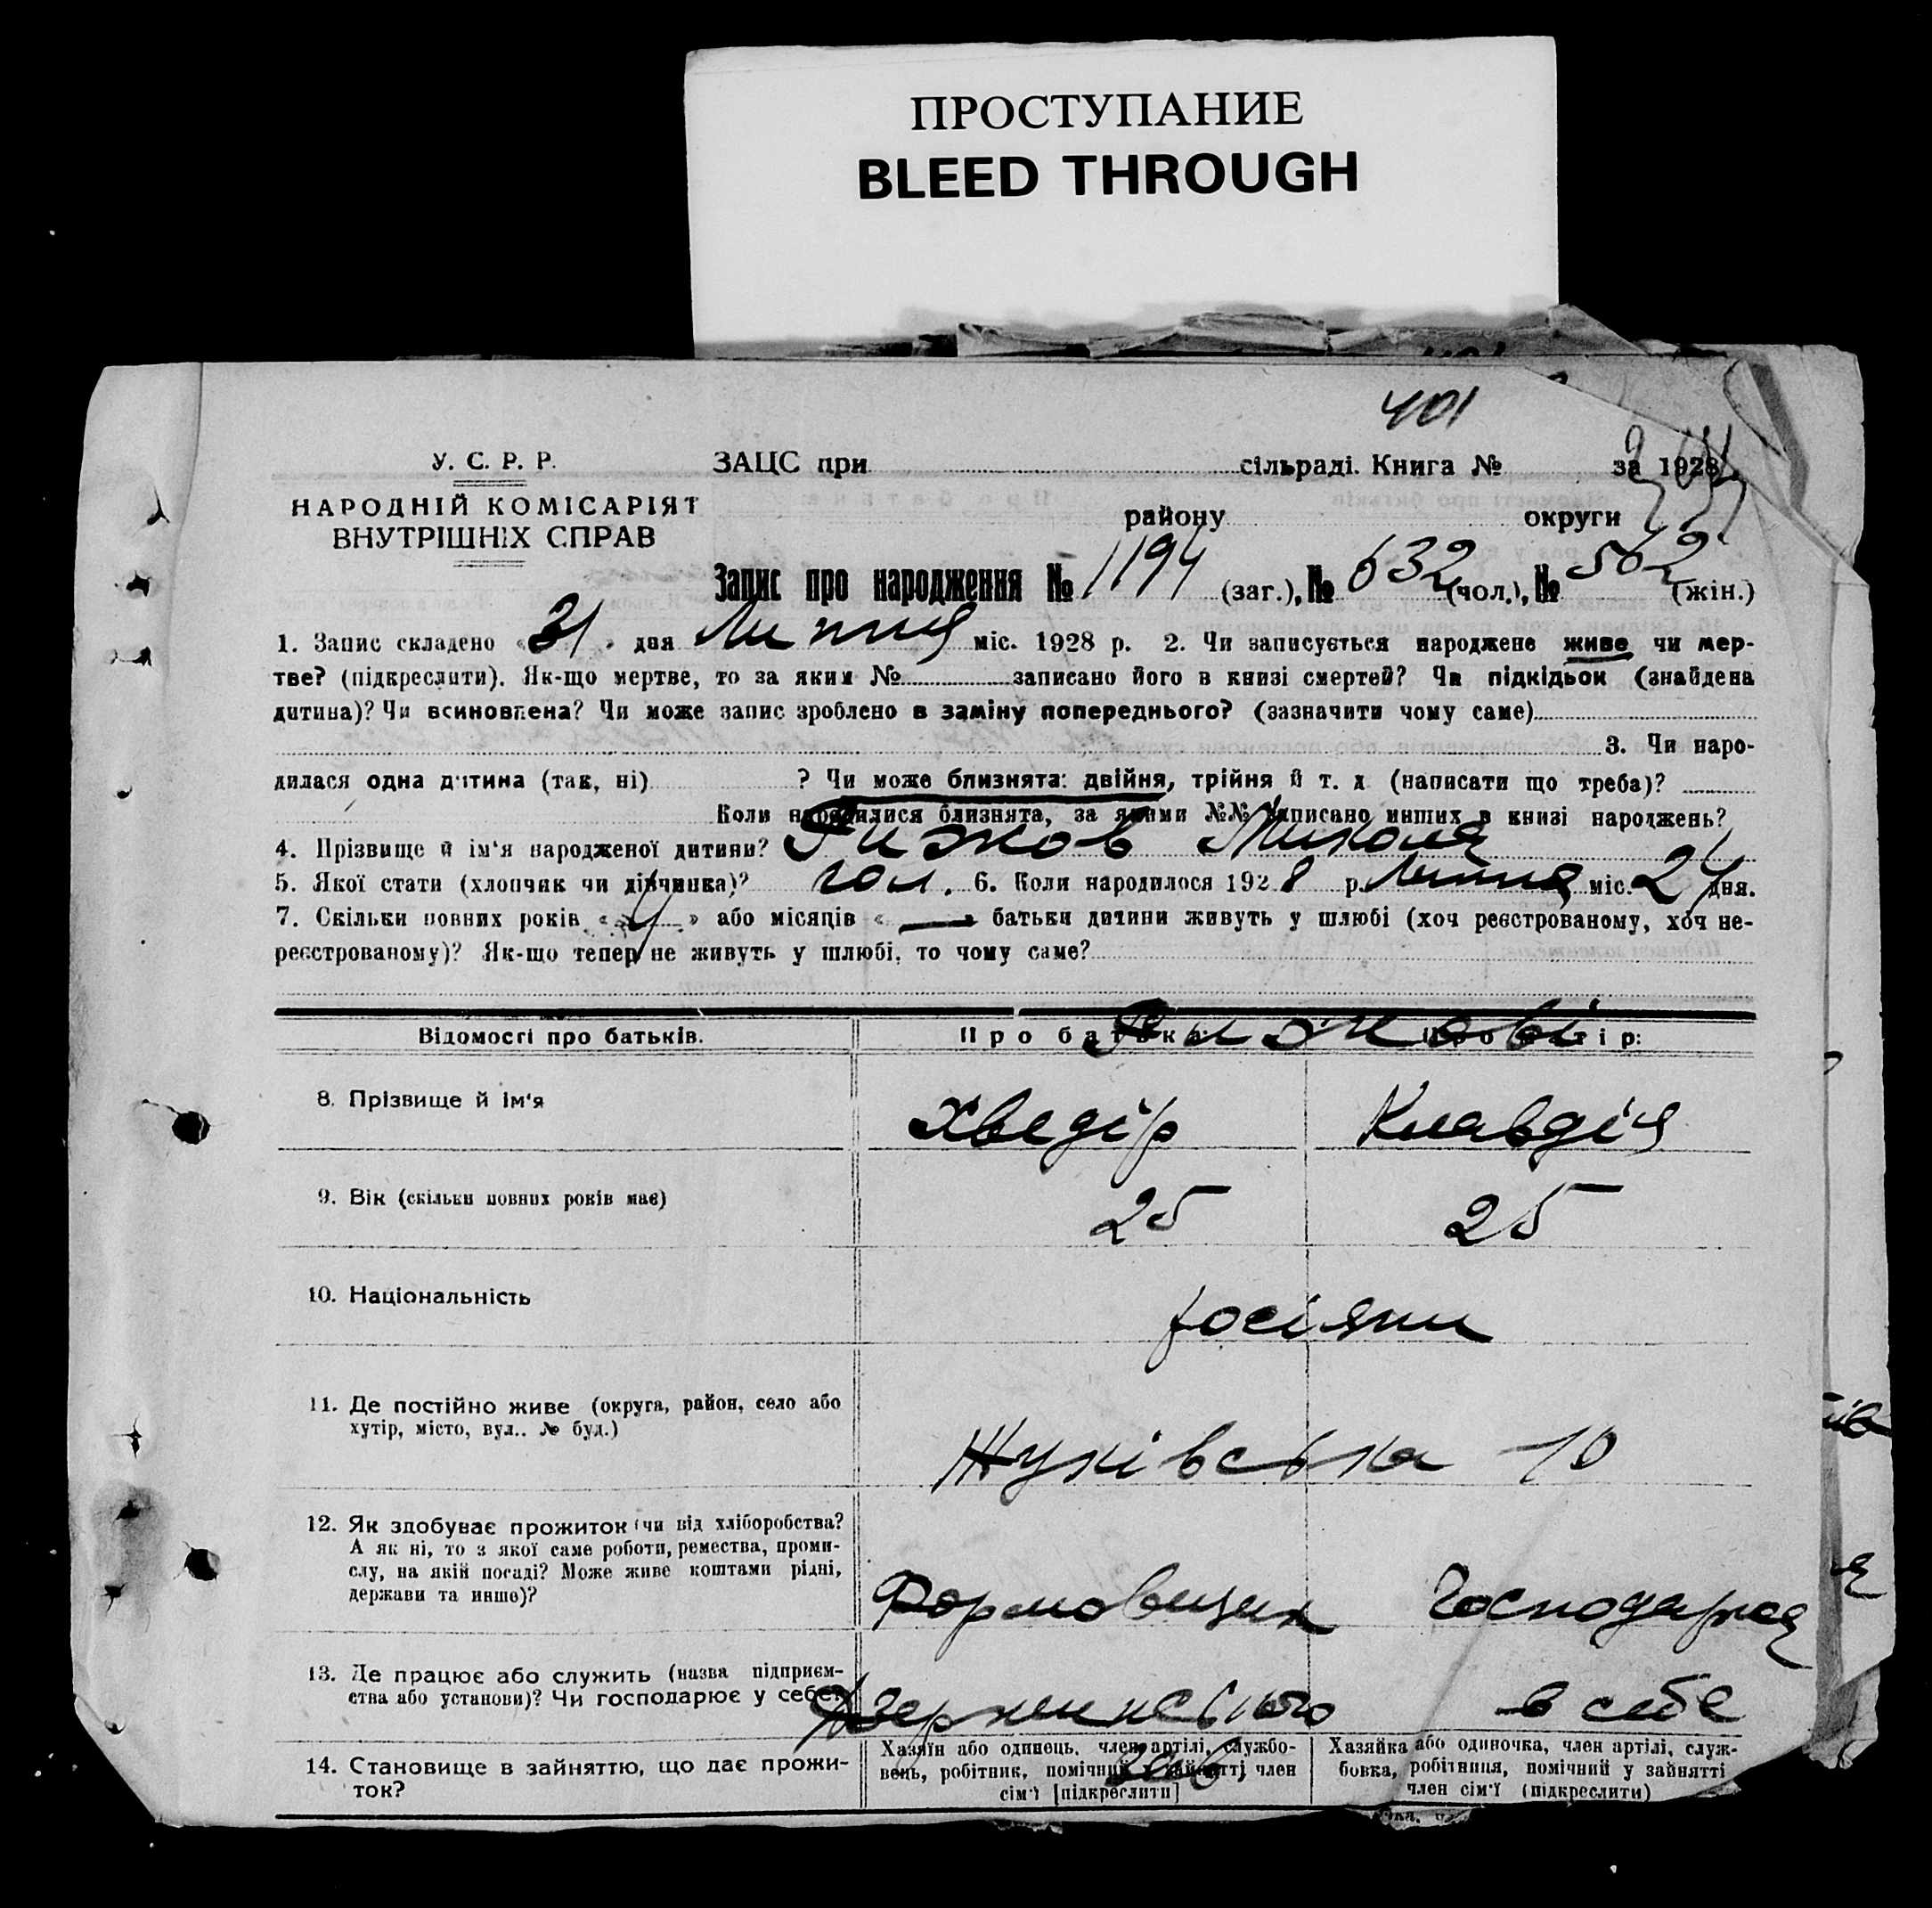 ПРОСТУПАНИЕ
BLEED THROUGH
401
У. С. Р. Р.
НАРОДНІЙ КОМІСАРІЯТ
ВНУТРІШНІХ СПРАВ
ЗАЦС при сільраді. Книга № за 1928
району округи
Запис про народження № 1194 (заг.), № 632 (чол.), № 562 (жін.)
1. Запис складено «31» дня Липня міс. 1928 р. 2. Чи записується народжене живе чи мер-
тве? (підкреслити). Як-що мертве, то за яким № записано його в книзі смертей? Чи підкідьок (знайдена
дитина)? Чи всиновлена? Чи може запис зроблено в заміну попереднього? (зазначити чому саме)
3. Чи наро-
дилася одна дитина (так, ні) ? Чи може близнята: двійня, трійня й т. д. (написати що треба)?
Коли народилися близнята, за якими №№ записано инших в книзі народжень?
4. Прізвище й ім'я народженої дитини? Рижков Микола
5. Якої стати (хлопчик чи дівчинка)? чол. 6. Коли народилося 1928 р. Липня міс. 24 дня.
7. Скільки повних років « 4 » або місяців « — » батьки дитини живуть у шлюбі (хоч реєстрованому, хоч не-
реєстрованому)? Як-що тепер не живуть у шлюбі, то чому саме?
Відомості про батьків. Про батька: Про матір:
Рижкові
8. Прізвище й ім'я Хведір Клавдія
9. Вік (скільки повних років має) 25 25
10. Національність росіяни
11. Де постійно живе (округа, район, село або
хутір, місто, вул.. № буд.)
Жуківська 10
12. Як здобуває прожиток (чи від хліборобства?
А як ні, то з якої саме роботи, ремества, проми-
слу, на якій посаді? Може живе коштами рідні,
держави та инше)?
Формовщик Господарка
13. Де працює або служить (назва підприєм-
ства або установи)? Чи господарює у себе?
Дзержинського в себе
зав.
14. Становище в зайняттю, що дає прожи-
ток?
Хазяїн або одинець, член артілі, службо-
вець, робітник, помічний у зайнятті, член
сім'ї [підкреслити]
Хазяйка або одиночка, член артілі, служ-
бовка, робітниця, помічний у зайнятті
член сім'ї (підкреслити)